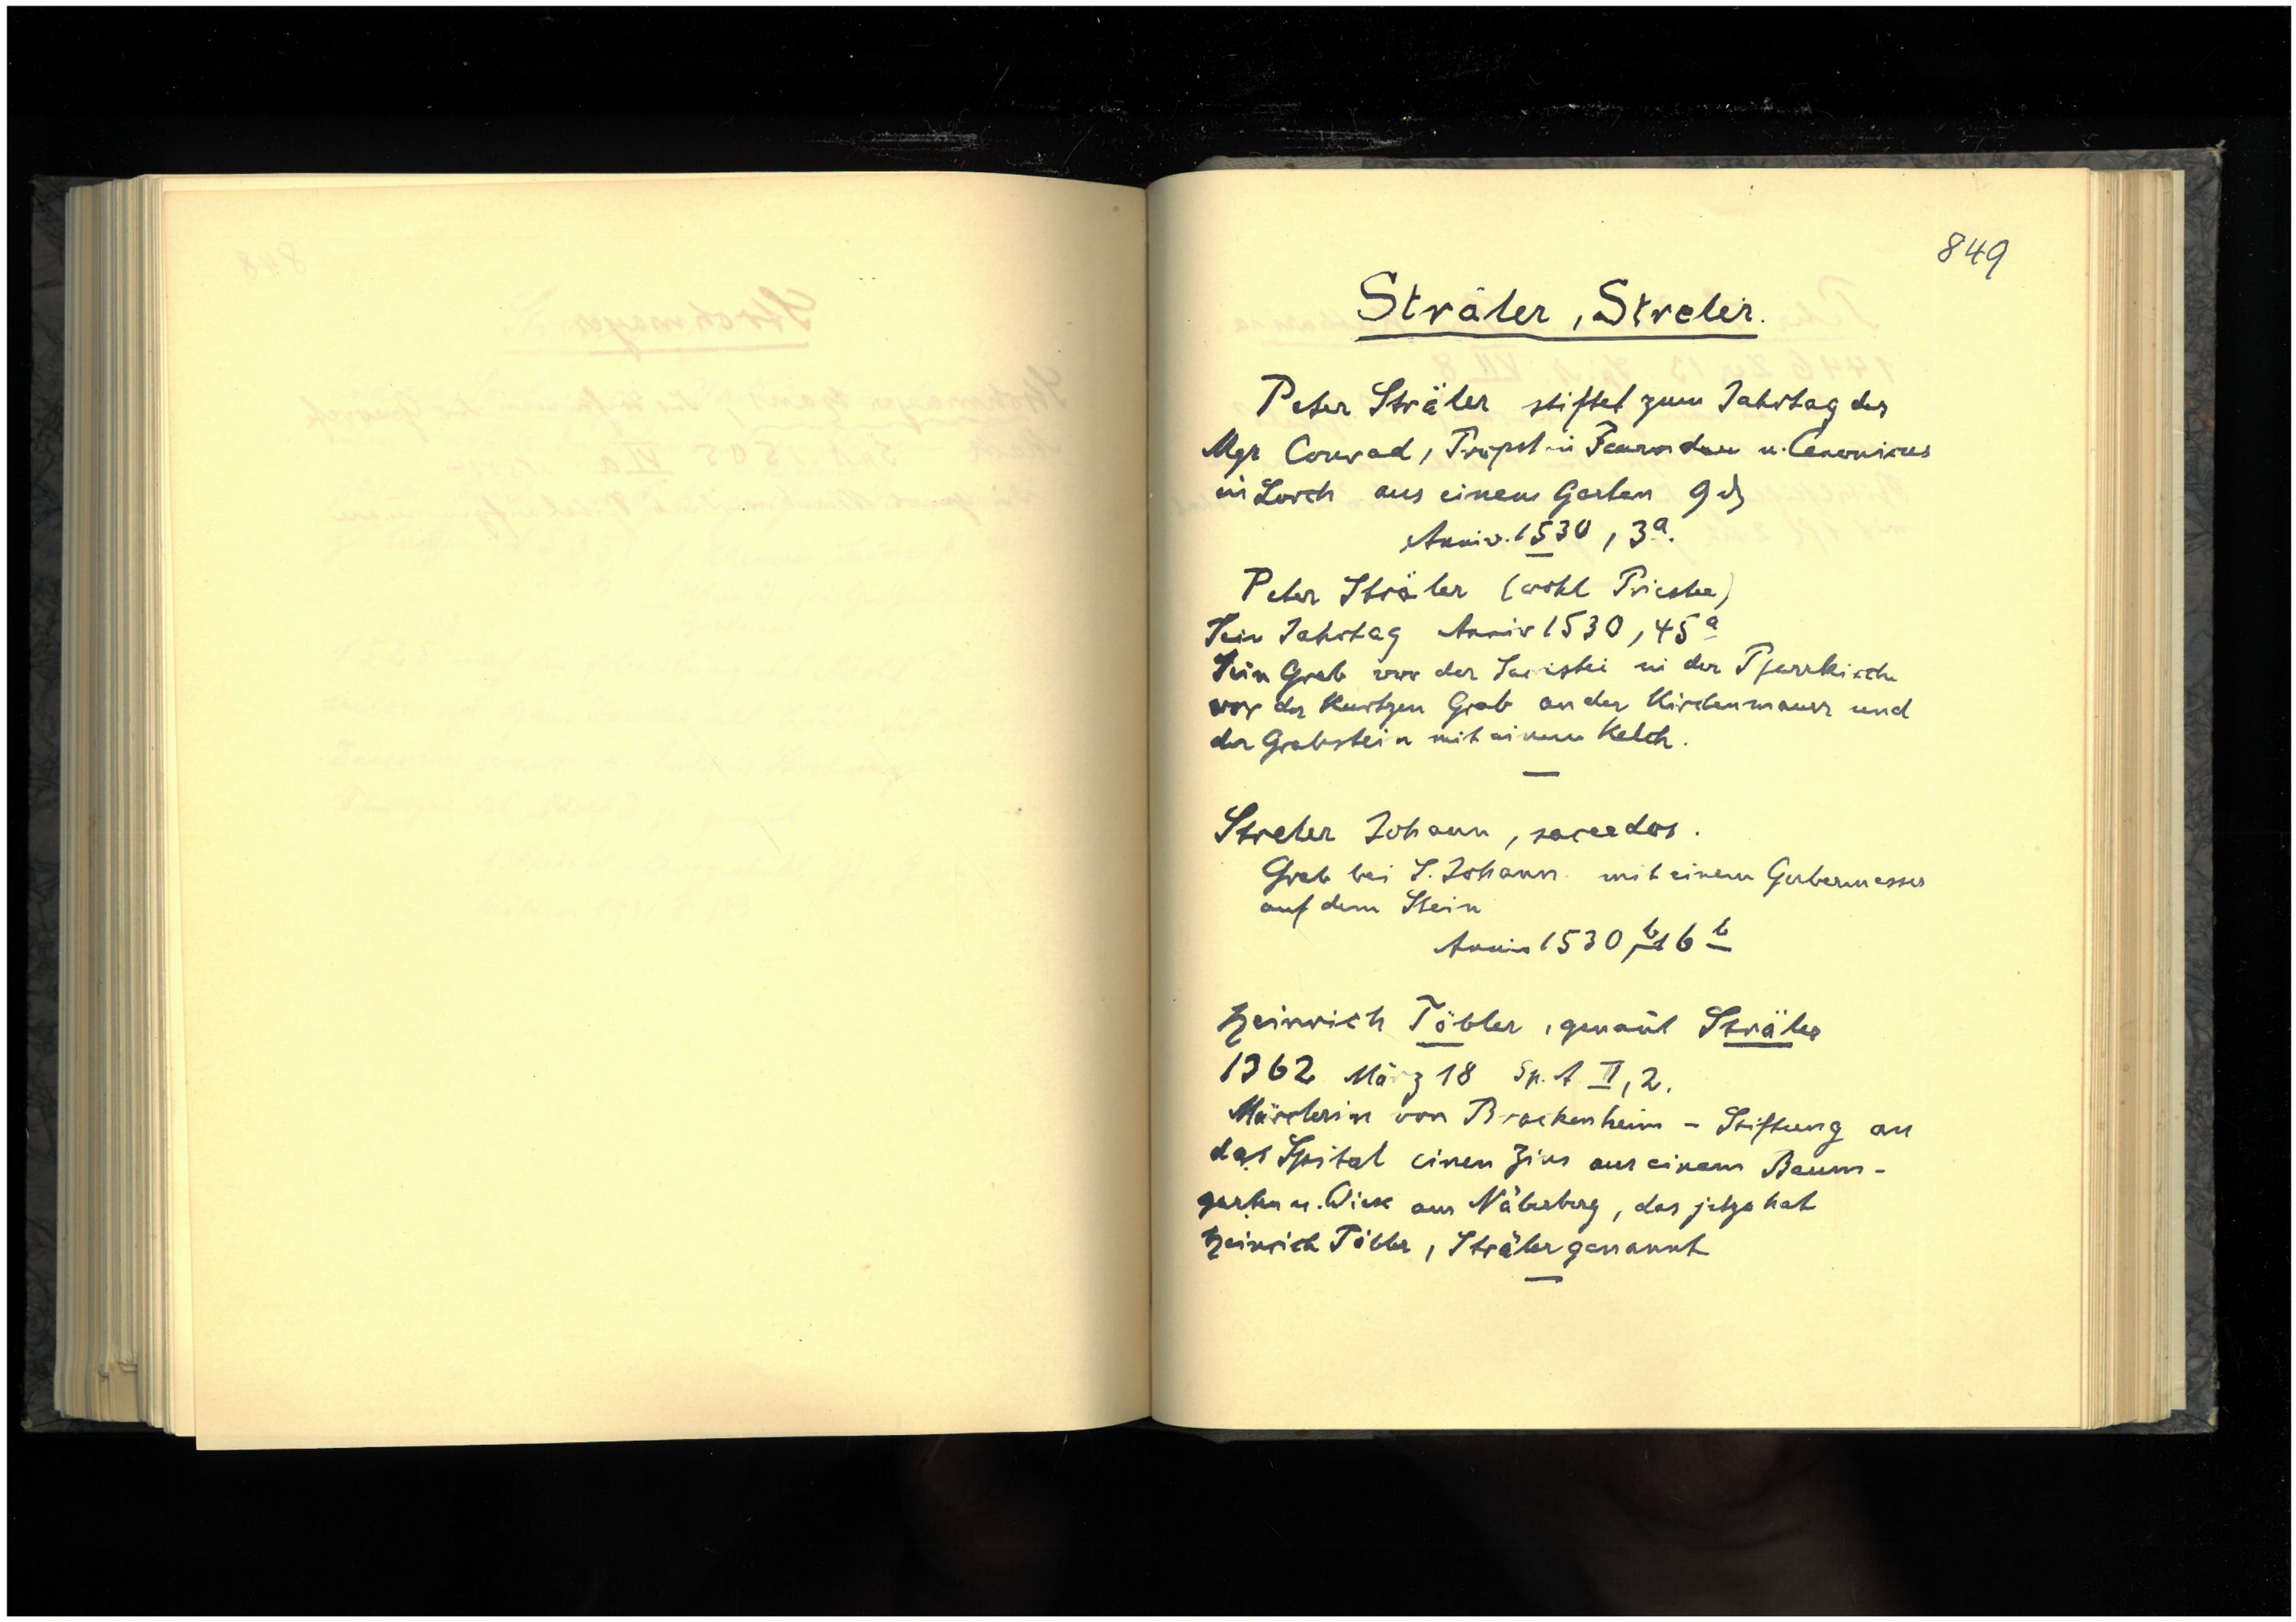 849
Sträler, Streler.
Peter Sträler stiftet zum Jahrtag des
Mgr Conrad, Propst in Faurndau u. Canonicus
in Lorch aus einem Garten 9 ₰
Anniv. 1530, 3a.
Peter Sträler (wohl Priester)
Sein Jahrtag Anniv 1530, 45a
Sein Grab vor der Sacristei in der Pfarrkirche
vor der Kurtzen Grab an der Kirchenmauer und
der Grabstein mit einem Kelch.
Streler Johann, sacerdos.
Grab bei S. Johann mit einem Gerbermesser
auf dem Stein
Anniv 1530, 16b
Heinrich Töbler, genan̄t Sträler
1362 März 18 Sp. A II, 2.
Märclerin von Brackenheim - Stiftung an
das Spital einen Zins aus einem Baum-
garten u. Wiese am Näberberg, das jetzo hat
Heinrich Töbler, Sträler genannt